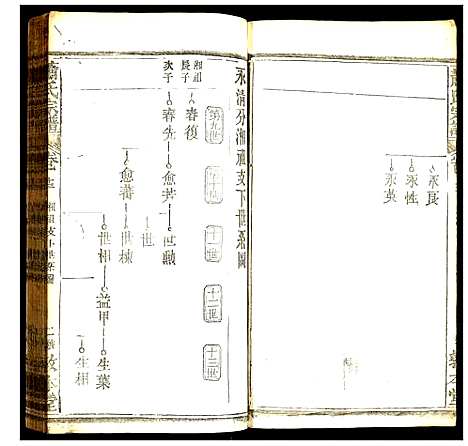 永良
永性
永英
敦本堂
永清分湘祖支下世系圖
第九世
十世
十一世
十二世
十三世
湘祖
長子
次子
春復
春先
愈芳
世勲
世
愈蕃
世棟
世相
益甲
生葉
生相
蕭氏宗譜
卷
湘祖支下世系圖
敦本堂